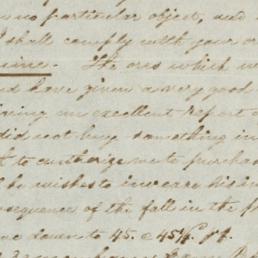 no particular object, and
I shall comply with your or
mine. The ores which we
and have given a very good
an excellent report o
did not buy something in
t to authorize me to purchas
be wishes to increase his in
sequence of the fall in the p
down to 45. @ 45½